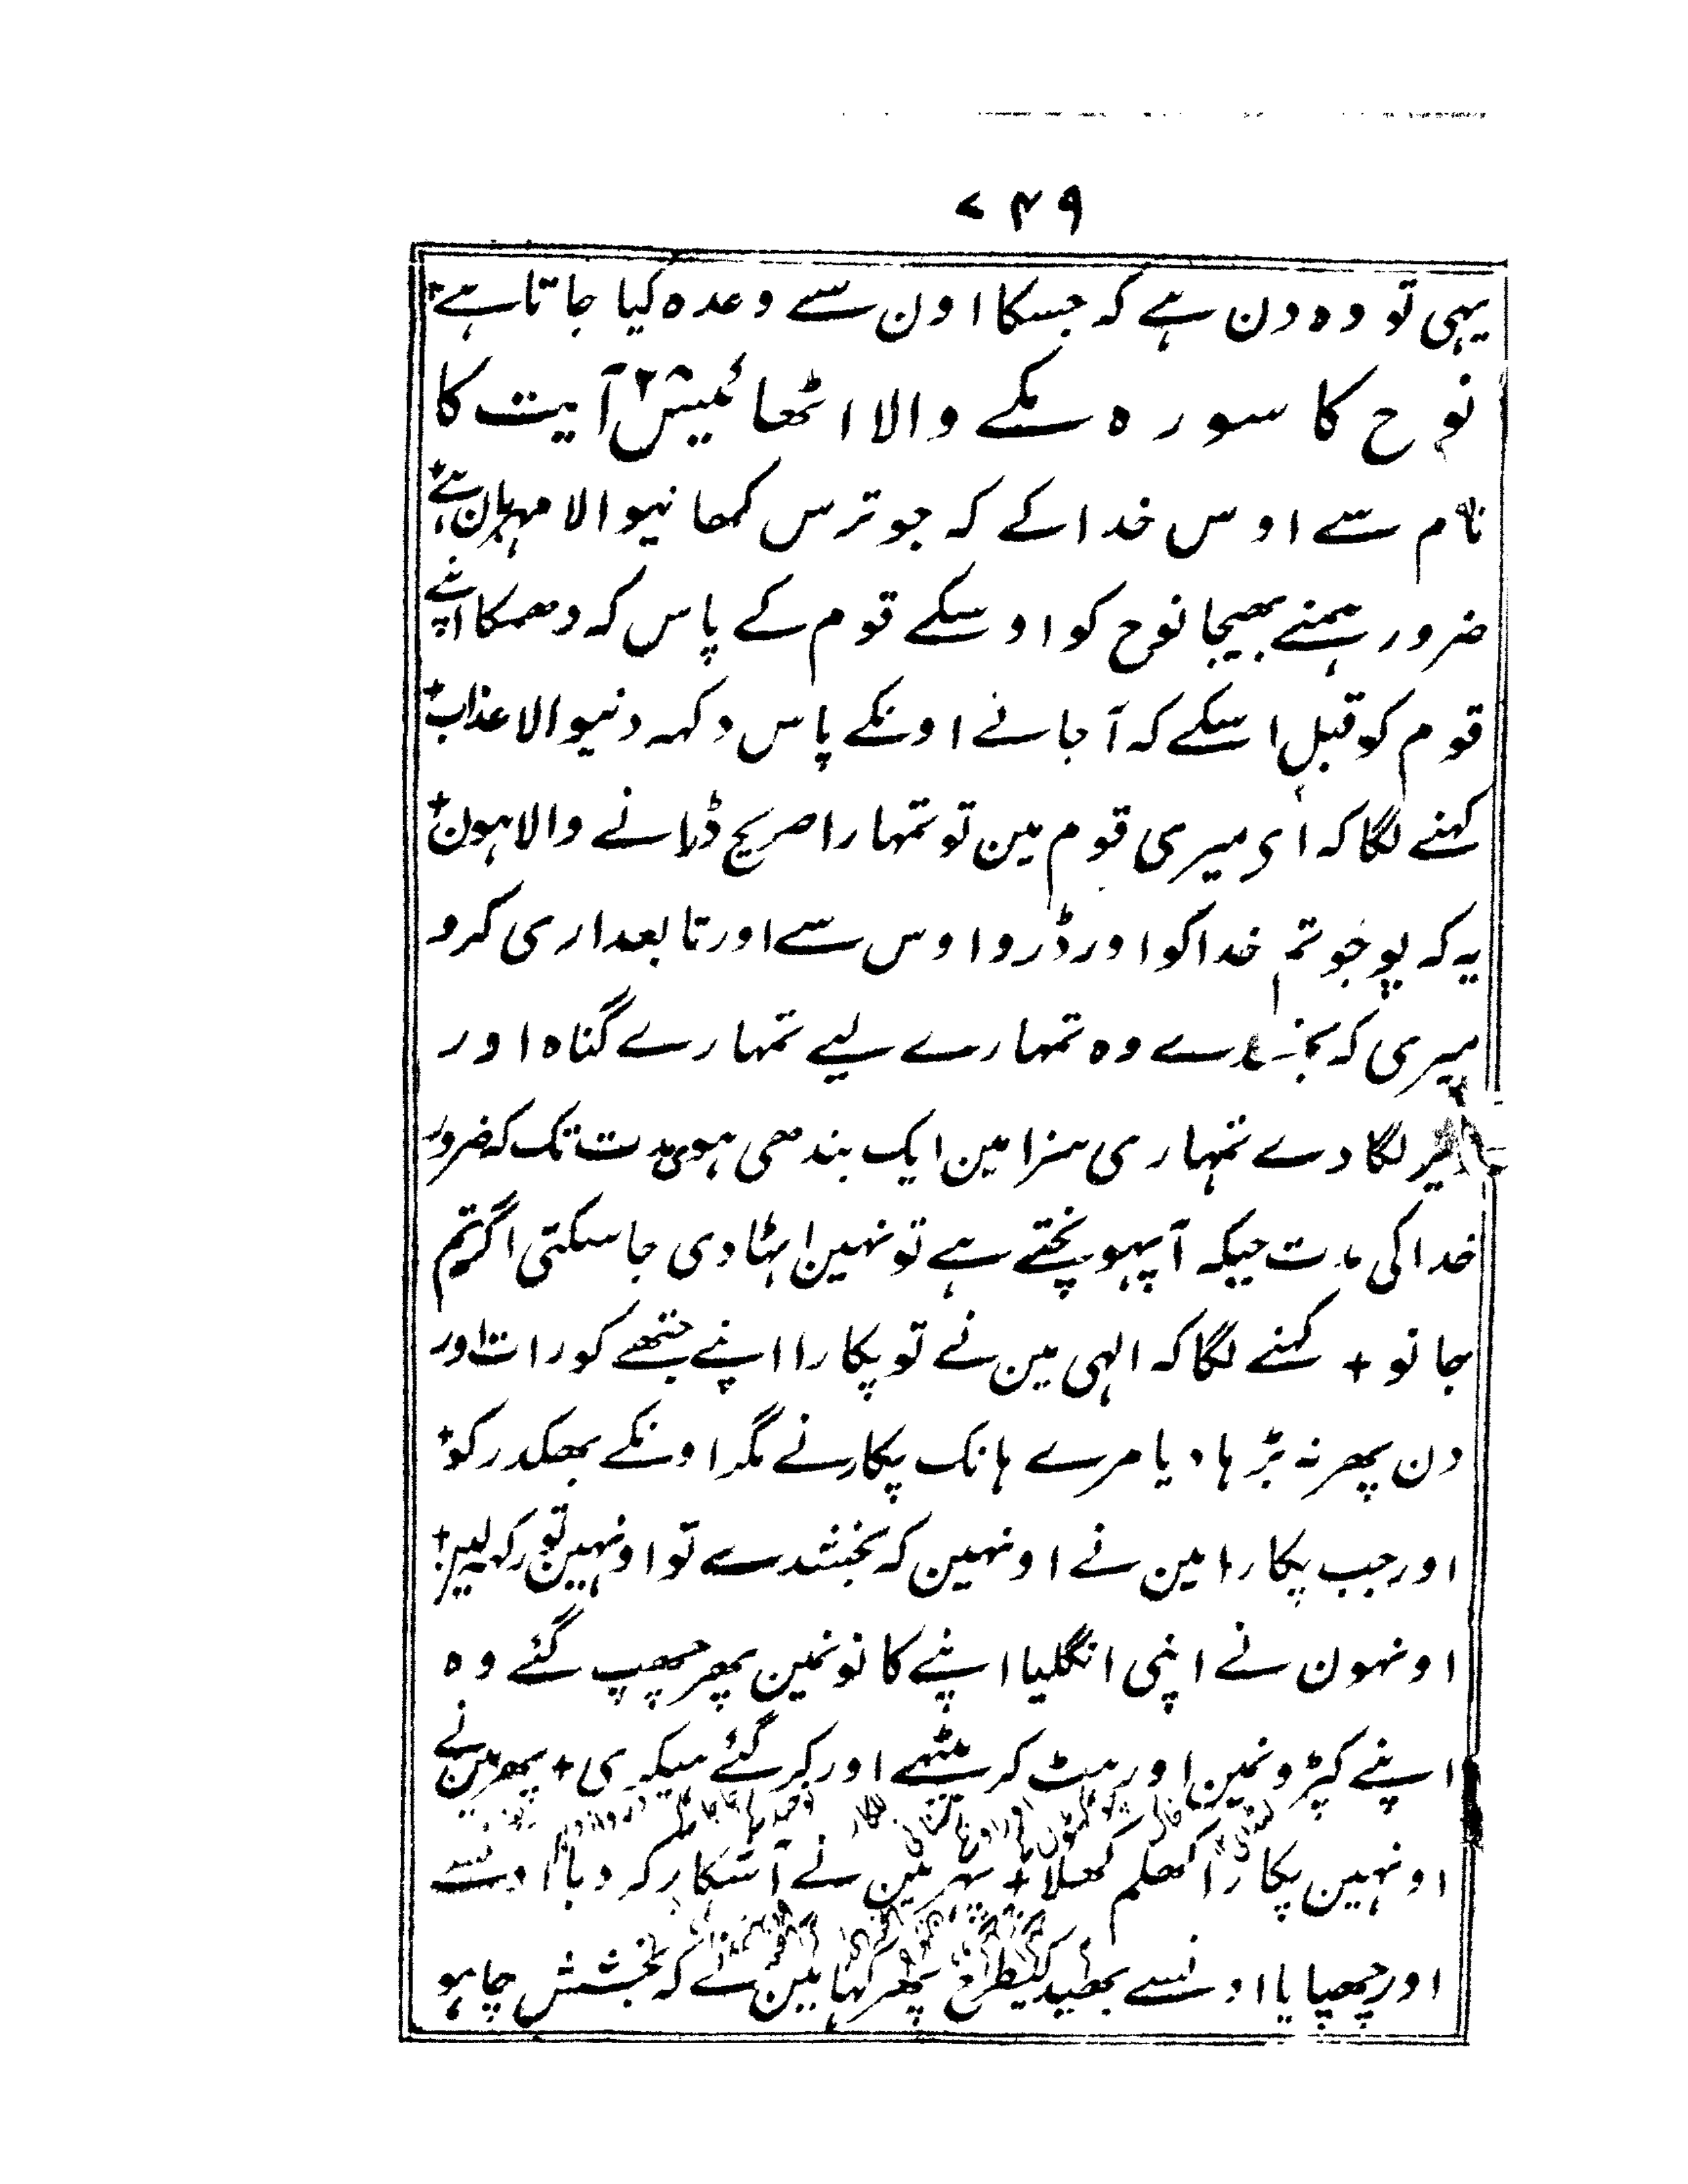 ۷۴۹
یہی تو وہ دن ہے کہ جسکا اون سے وعدہ کیا جاتا ہے +
نوح کا سورہ مکے والا اٹھائیس ۲۸ آیت کا
نام سے اوس خدا کے کہ جو ترس کھانیوالا مہربان ہے +
ضرور ہمنے بھیجا نوح کو اوسکے قوم کے پاس کہ دھمکا اپنے
قوم کو قبل اسکے کہ آ جانے اونکے پاس دکہہ دنیوالا عذاب +
کہنے لگا کہ ای میری قوم مین تو تمہارا صریح ڈرانے والا ہون +
یہ کہ پوجو تم خدا کو اور ڈرو اوس سے اور تابعداری کرو
میری کہ بخشدے وہ تمہارے لیے تمہارے گناہ اور
لگا دے تمہاری سزا مین ایک بندھی ہوی مدت تک کہ ضرور
خدا کی مدت جبکہ آ پہونچتے ہے تو نہین ہٹا دی جا سکتی اگر تم
جانو + کہنے لگا کہ الہی مین نے تو پکارا اپنے جتھے کو رات اور
دن پھر نہ بڑہا دیا مرے ہانک پکارنے مگر اونکے بھگدر کو +
اور جب پکارا مین نے اونہین کہ بخشدے تو اونہین تو رکہہ لین +
اونہون نے اپنی انگلیا اپنے کانونمین پھر چھپ گئے وہ
اپنے کپڑونمین اور ہٹ کر بیٹھے اور کر گئے سیکہی + پھر مین نے
اونہین پکارا کھلم کھلا + پہر مین نے آشکار کہ دیا اونسے
اور چھپایا اونسے بھید کیطرح پھر کہا مین نے کہ بخشش چاہو